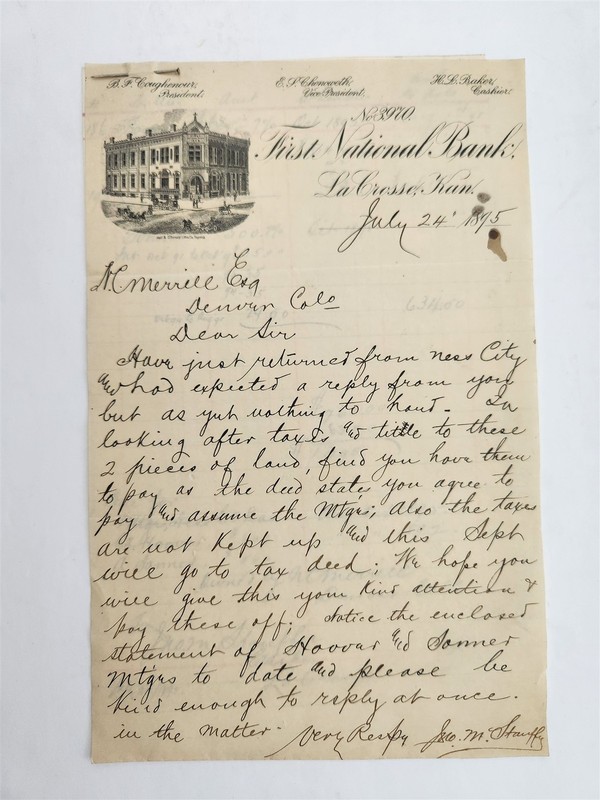 B. F. Coughenour, President.
E. S. Chenoweth, Vice President.
H. L. Baker, Cashier.
No 3970.
First National Bank,
La Crosse, Kan.
July 24" 1895
N C Merrill Esq
Denver Colo
Dear Sir
Have just returned from Ness City
and had expected a reply from you
but as yet nothing to hand - In
looking after taxes and title to these
2 pieces of land, find you have them
to pay as the deed states you agree to
pay and assume the Mtgrs; Also the taxes
are not kept up and this Sept
will go to tax deed; We hope you
will give this your kind attention &
pay these off; Notice the enclosed
statement of Hoover and Sonner
Mtgrs to date and please be
kind enough to reply at once.
in the matter - Very Respy Jno. M. Stauffy
634.00